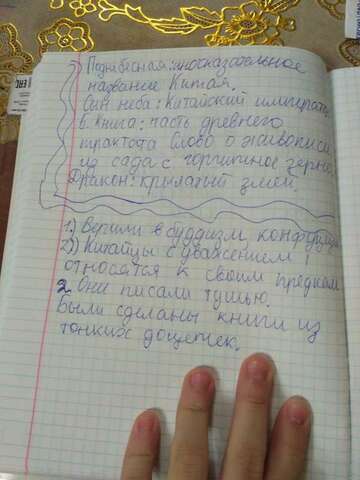 Поднебесная: иносказательное
название Китая.
Сын неба: Китайский императ
Б. Книга: часть древнего
трактата Слово о живописи
из сада с горчичное зерно.
Дракон: крылатый змей.
1) Верили в буддизм, конфуци
2) Китайцы с уважением
относятся к своим предкам
2. Они писали тушью.
Были сделаны книги из
тонких дощечек.